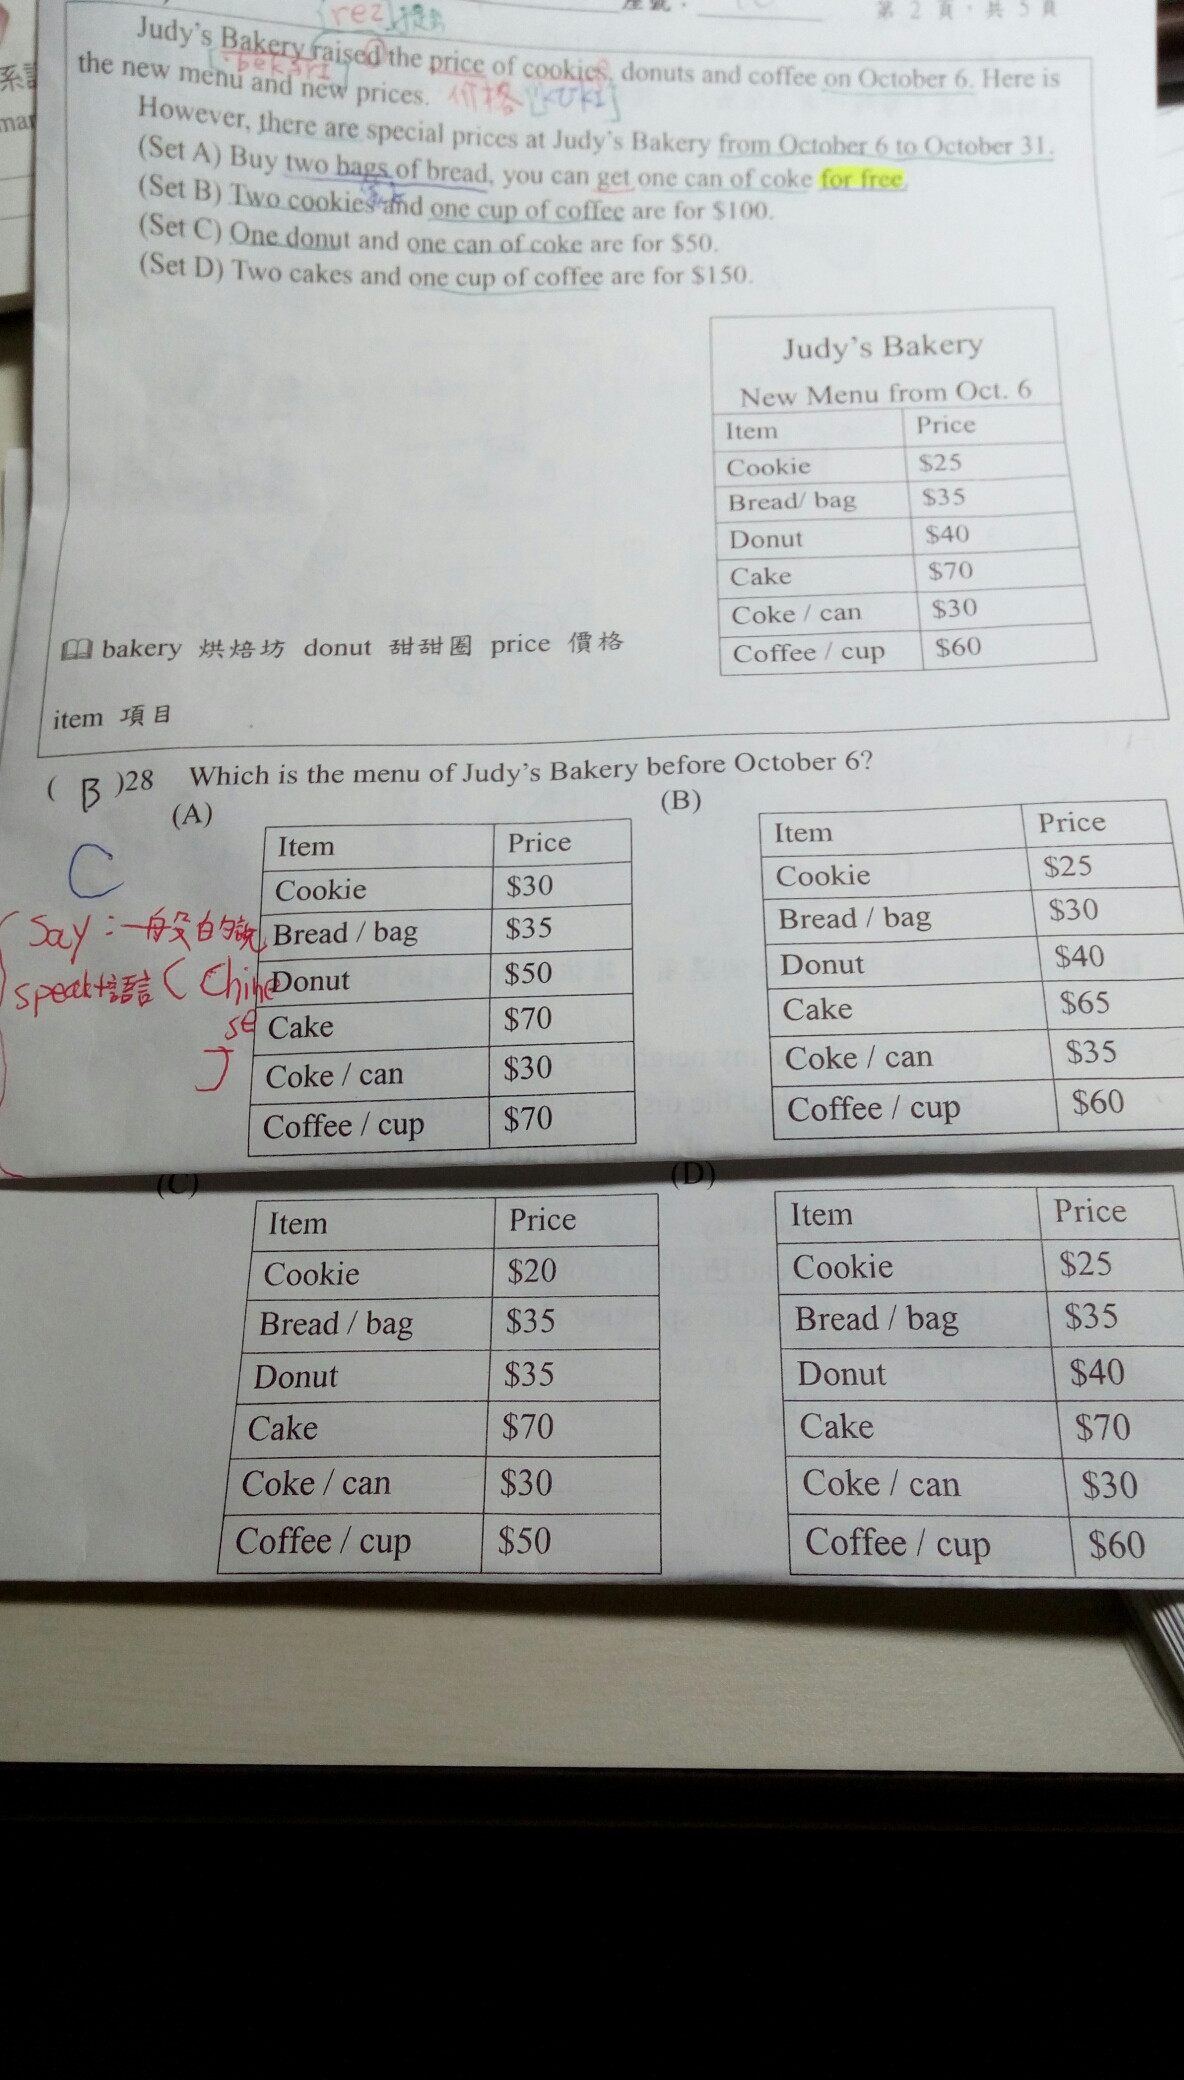 [rez]
第 2 頁，共 5 頁
Judy's Bakery raised the price of cookies, donuts and coffee on October 6. Here is
the new menu and new prices. 价格 [kUkI]
However, there are special prices at Judy's Bakery from October 6 to October 31.
(Set A) Buy two bags of bread, you can get one can of coke for free.
(Set B) Two cookies and one cup of coffee are for $100.
(Set C) One donut and one can of coke are for $50.
(Set D) Two cakes and one cup of coffee are for $150.
Judy's Bakery
New Menu from Oct. 6
Item Price
Cookie $25
Bread/ bag $35
Donut $40
Cake $70
Coke / can $30
Coffee / cup $60
bakery 烘焙坊 donut 甜甜圈 price 價格
item 項目
( B )28 Which is the menu of Judy's Bakery before October 6?
C
(A)
Item Price
Cookie $30
Bread / bag $35
Donut $50
Cake $70
Coke / can $30
Coffee / cup $70
Say：一般的說
speak+語言(Chinese)
(B)
Item Price
Cookie $25
Bread / bag $30
Donut $40
Cake $65
Coke / can $35
Coffee / cup $60
(C)
Item Price
Cookie $20
Bread / bag $35
Donut $35
Cake $70
Coke / can $30
Coffee / cup $50
(D)
Item Price
Cookie $25
Bread / bag $35
Donut $40
Cake $70
Coke / can $30
Coffee / cup $60